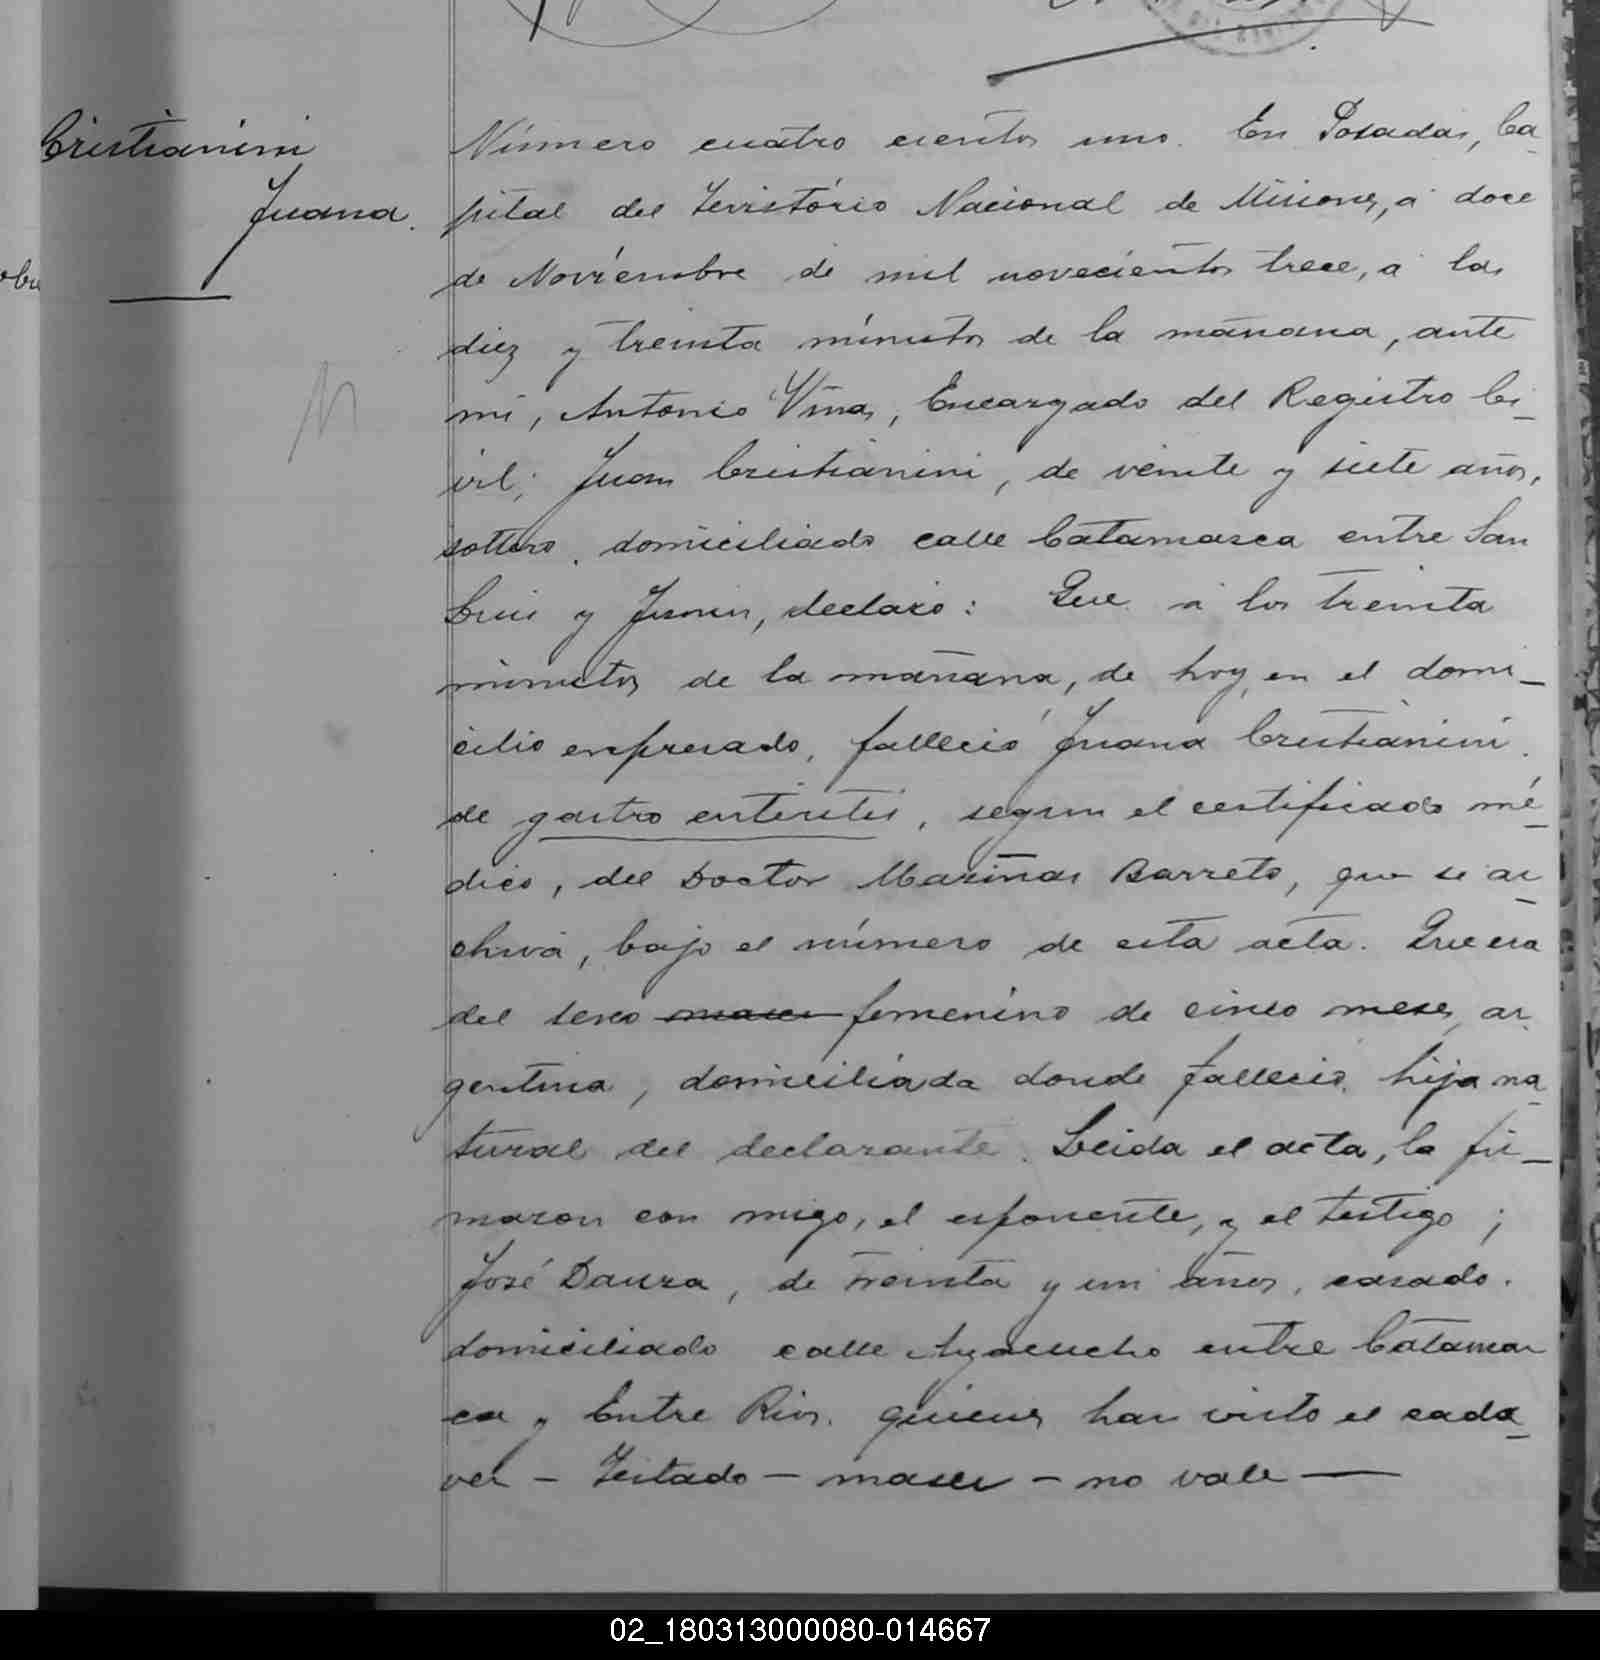 Cristianini
Juana.
Número cuatro cientos uno. En Posadas, Ca-
pital del Territorio Nacional de Misiones, á doce
de Noviembre de mil novecientos trece, a las
diez y treinta minutos de la mañana, ante
mi, Antonio Viñas, Encargado del Registro Ci-
vil; Juan Cristianini, de veinte y siete años,
soltero, domiciliado calle Catamarca entre San
Luis y Junin, declaro: Que á los treinta
minutos de la mañana, de hoy, en el domi-
cilio expresado, falleció Juana Cristianini.
de gastro enteritis, segun el certificado mé-
dico, del Doctor Mariñas Barreto, que se ar-
chiva, bajo el número de esta acta. Que era
del sexo mascu femenino de cinco meses, ar-
gentina, domiciliada donde falleció, hija na-
tural del declarante. Leida el acta, la fir-
maron con migo, el esponente, y el testigo;
José Daura, de treinta y un años, casado.
domiciliado calle Ayacucho entre Catamar
ca y Entre Rios. quienes han visto el cada-
ver - Testado - mascu - no vale —
02_180313000080-014667